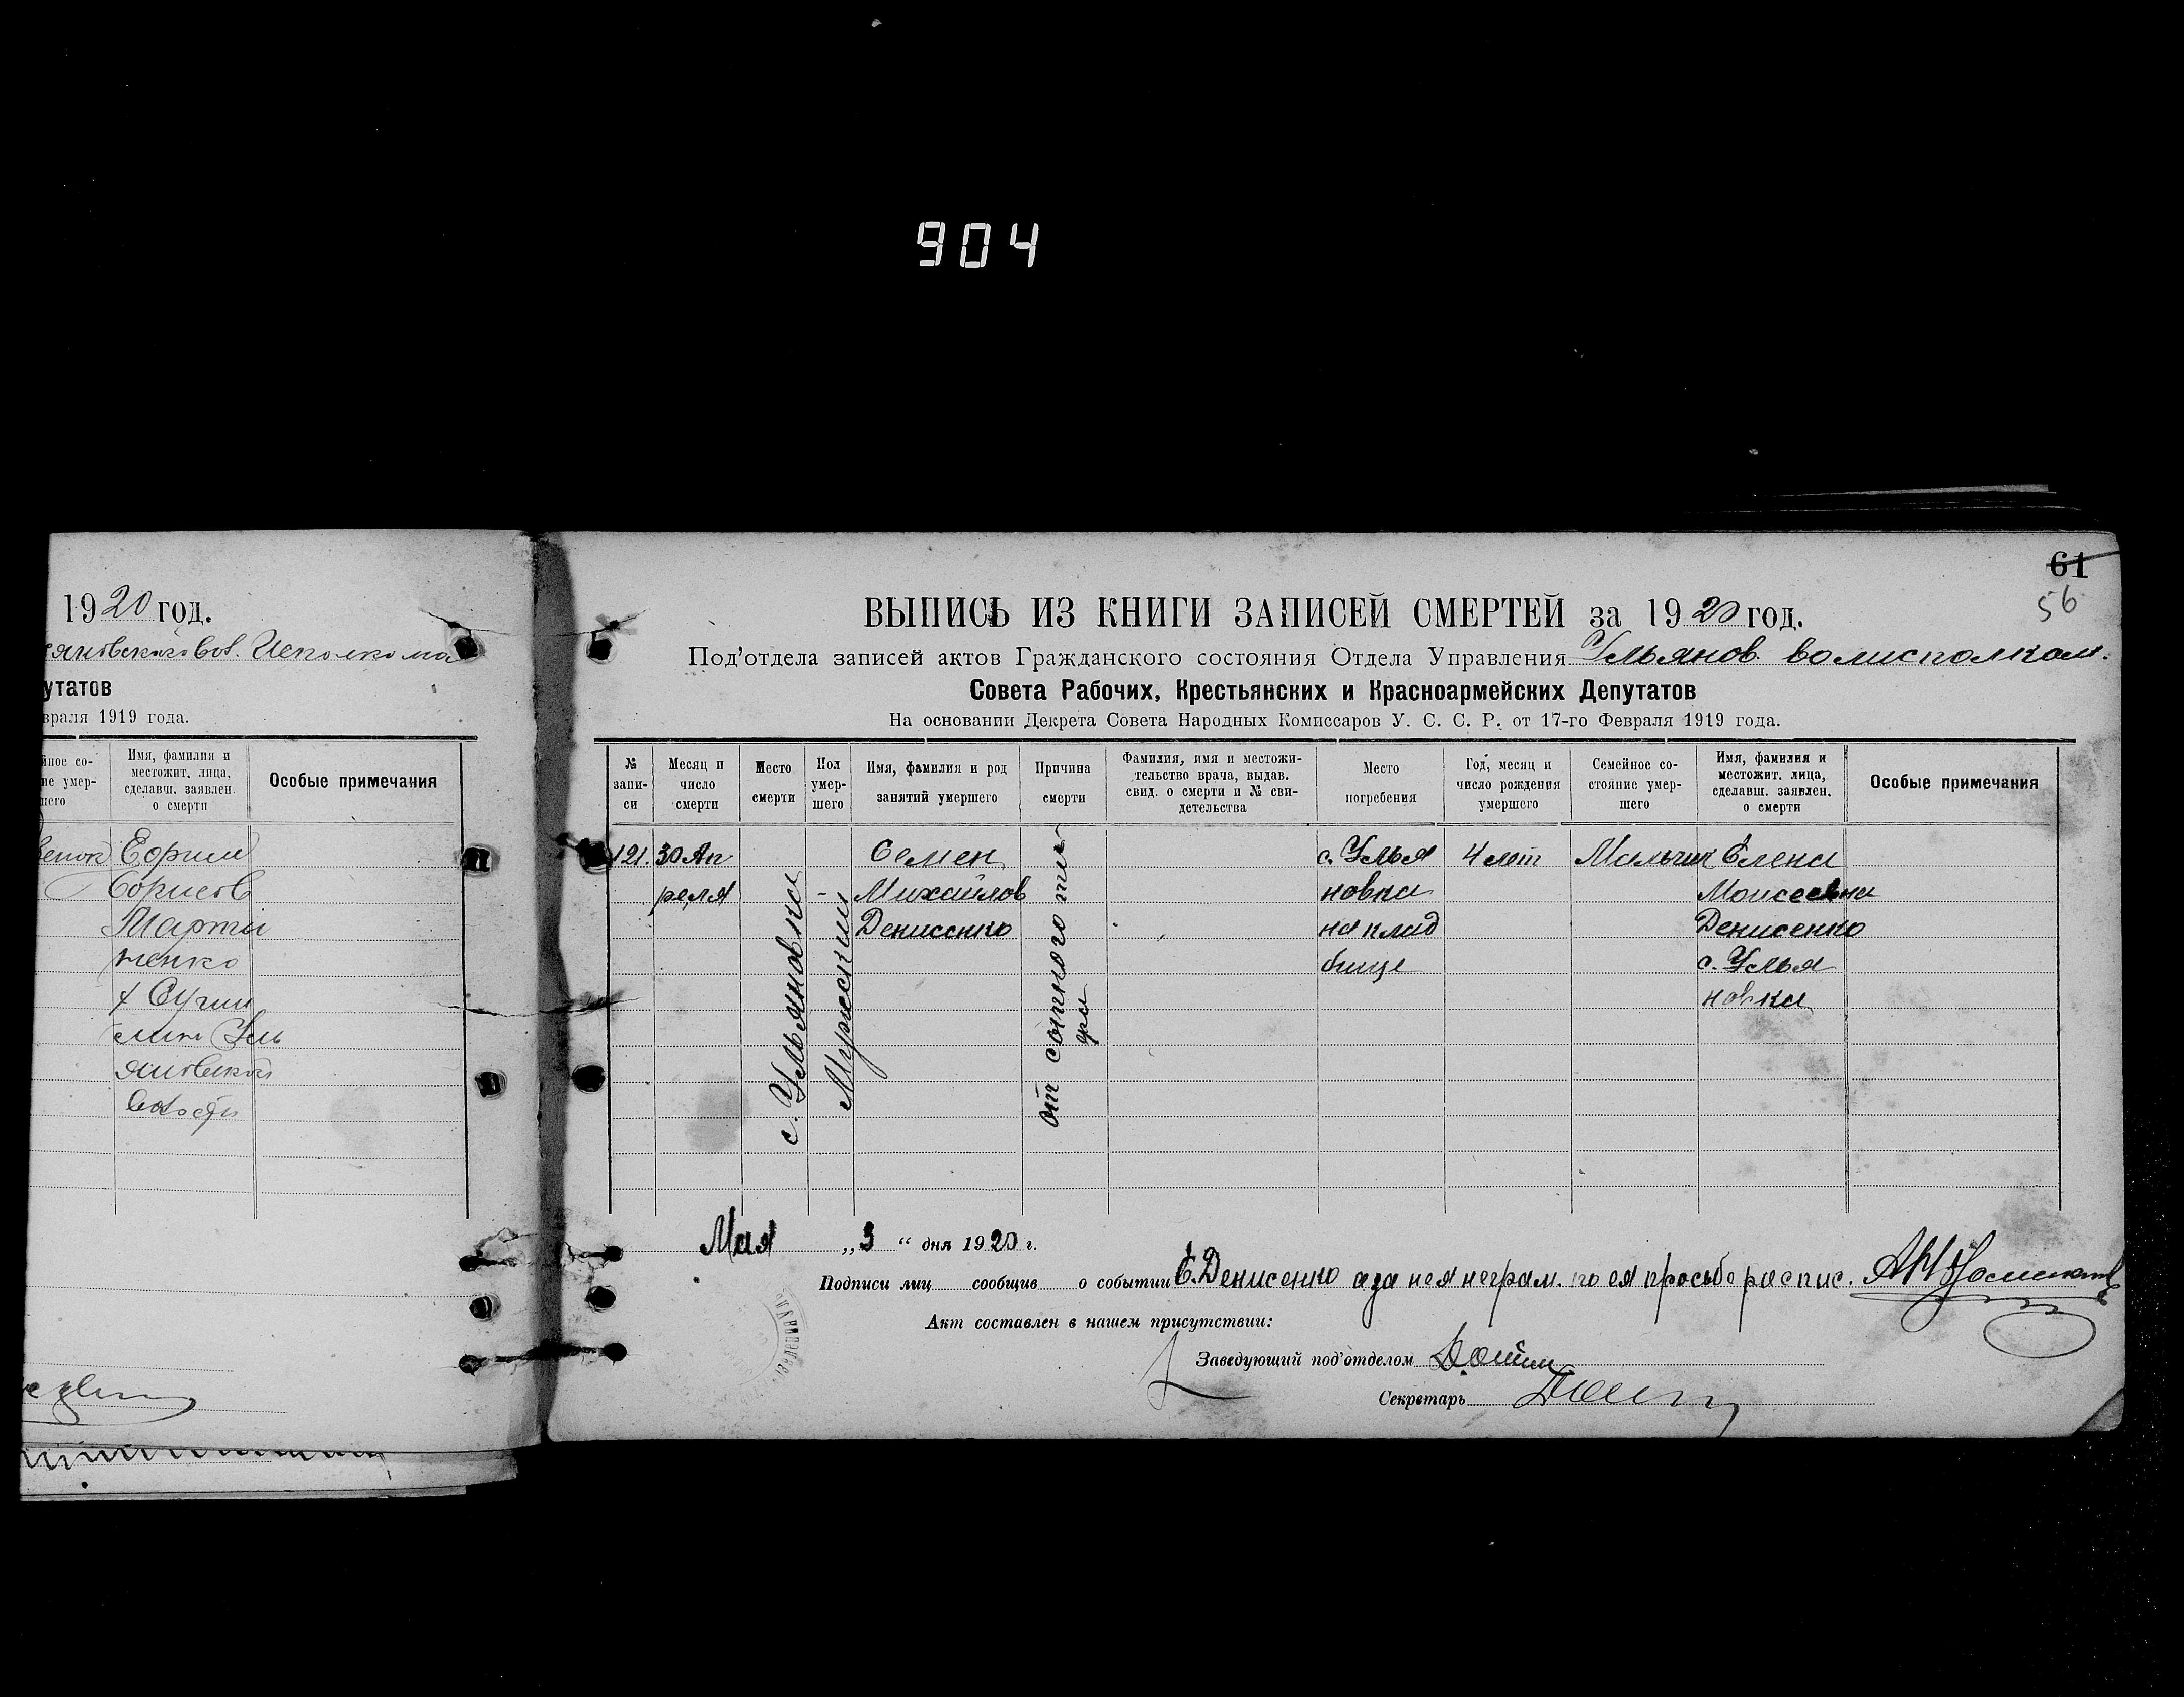 904
1920 год.
Исполкома
утатов
враля 1919 года.
йное со-
ие умер-
шего
Имя, фамилия и
местожит. лица,
сделавш. заявлен.
о смерти
Особые примечания
Марти
ненко
61
56
ВЫПИСЬ ИЗ КНИГИ ЗАПИСЕЙ СМЕРТЕЙ за 1920 год.
Под'отдела записей актов Гражданского состояния Отдела Управления Ульянов. волисполком.
Совета Рабочих, Крестьянских и Красноармейских Депутатов
На основании Декрета Совета Народных Комиссаров У. С. С. Р. от 17-го Февраля 1919 года.
№
запи-
си
Месяц и
число
смерти
Место
смерти
Пол
умер-
шего
Имя, фамилия и род
занятий умершего
Причина
смерти
Фамилия, имя и местожи-
тельство врача, выдав.
свид. о смерти и № сви-
детельства
Место
погребения
Год, месяц и
число рождения
умершего
Семейное со-
стояние умер-
шего
Имя, фамилия и
местожит. лица,
сделавш. заявлен.
о смерти
Особые примечания
121.
30 Ап
реля
с. Ульяновка
Мужский
Семен
Михайлов
Денисенко
от сыпного ти
фа
с. Улья
новка
на клад
бище
4 лет
Мальчик
Елена
Моисеевна
Денисенко
с. Улья
новка
Мая „3“ дня 1920 г.
Подписи лиц сообщив о событии Е. Денисенко а за нея неграм. по ея просьбе распис.
Акт составлен в нашем присутствии:
Заведующий под'отделом
Секретарь